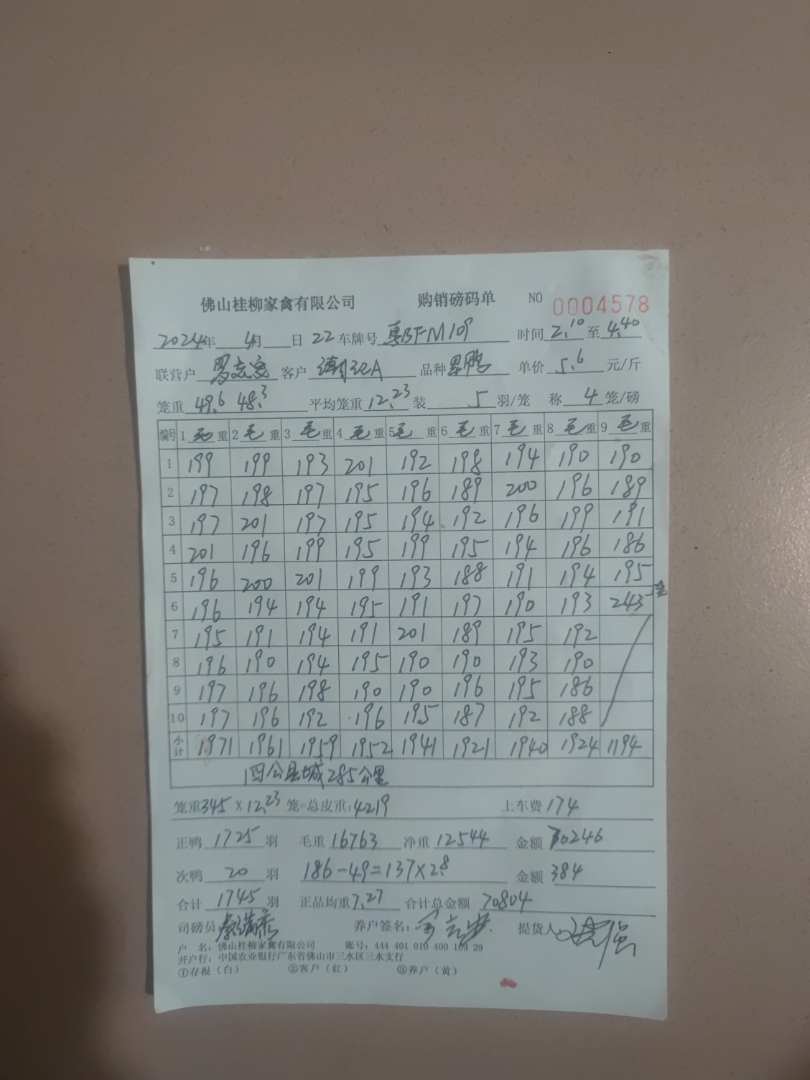 佛山桂柳家禽有限公司 购销磅码单 NO 0004578
2024年 4月 日 22 车牌号 粤BFM109 时间 2.10 至 4.40
联营户 客户 潮记A 品种 单价 5.6 元/斤
笼重 49.6 48.3 平均笼重 12.23 装 5 羽/笼 称 4 笼/磅
编号 1 毛重 2 毛重 3 毛重 4 毛重 5 毛重 6 毛重 7 毛重 8 毛重 9 毛重
1 199 199 193 201 192 198 194 190 190
2 197 198 197 195 196 189 200 196 189
3 197 201 197 195 194 192 196 199 191
4 201 196 199 195 199 195 194 196 186
5 196 200 201 199 193 188 191 194 195
6 196 194 194 195 191 197 190 193 243
7 195 191 194 191 201 189 195 192
8 196 190 194 195 190 190 193 190
9 197 196 198 190 190 196 195 186
10 197 196 192 196 195 187 192 188
小计 1971 1961 1959 1952 1941 1921 1940 1924 1194
四公县城285公里
笼重345×12.23 笼=总皮重:4219 上车费174
正鸭 1725 羽 毛重 16763 净重 12544 金额 70246
次鸭 20 羽 186-49=137×2.8 金额 384
合计 1745 羽 正品均重 7.27 合计总金额 70804
司磅员 养户签名: 提货人
户 名: 佛山桂柳家禽有限公司 账号: 444 401 010 400 163 29
开户行: 中国农业银行广东省佛山市三水区三水支行
①存根(白) ②客户(红) ③养户(黄)